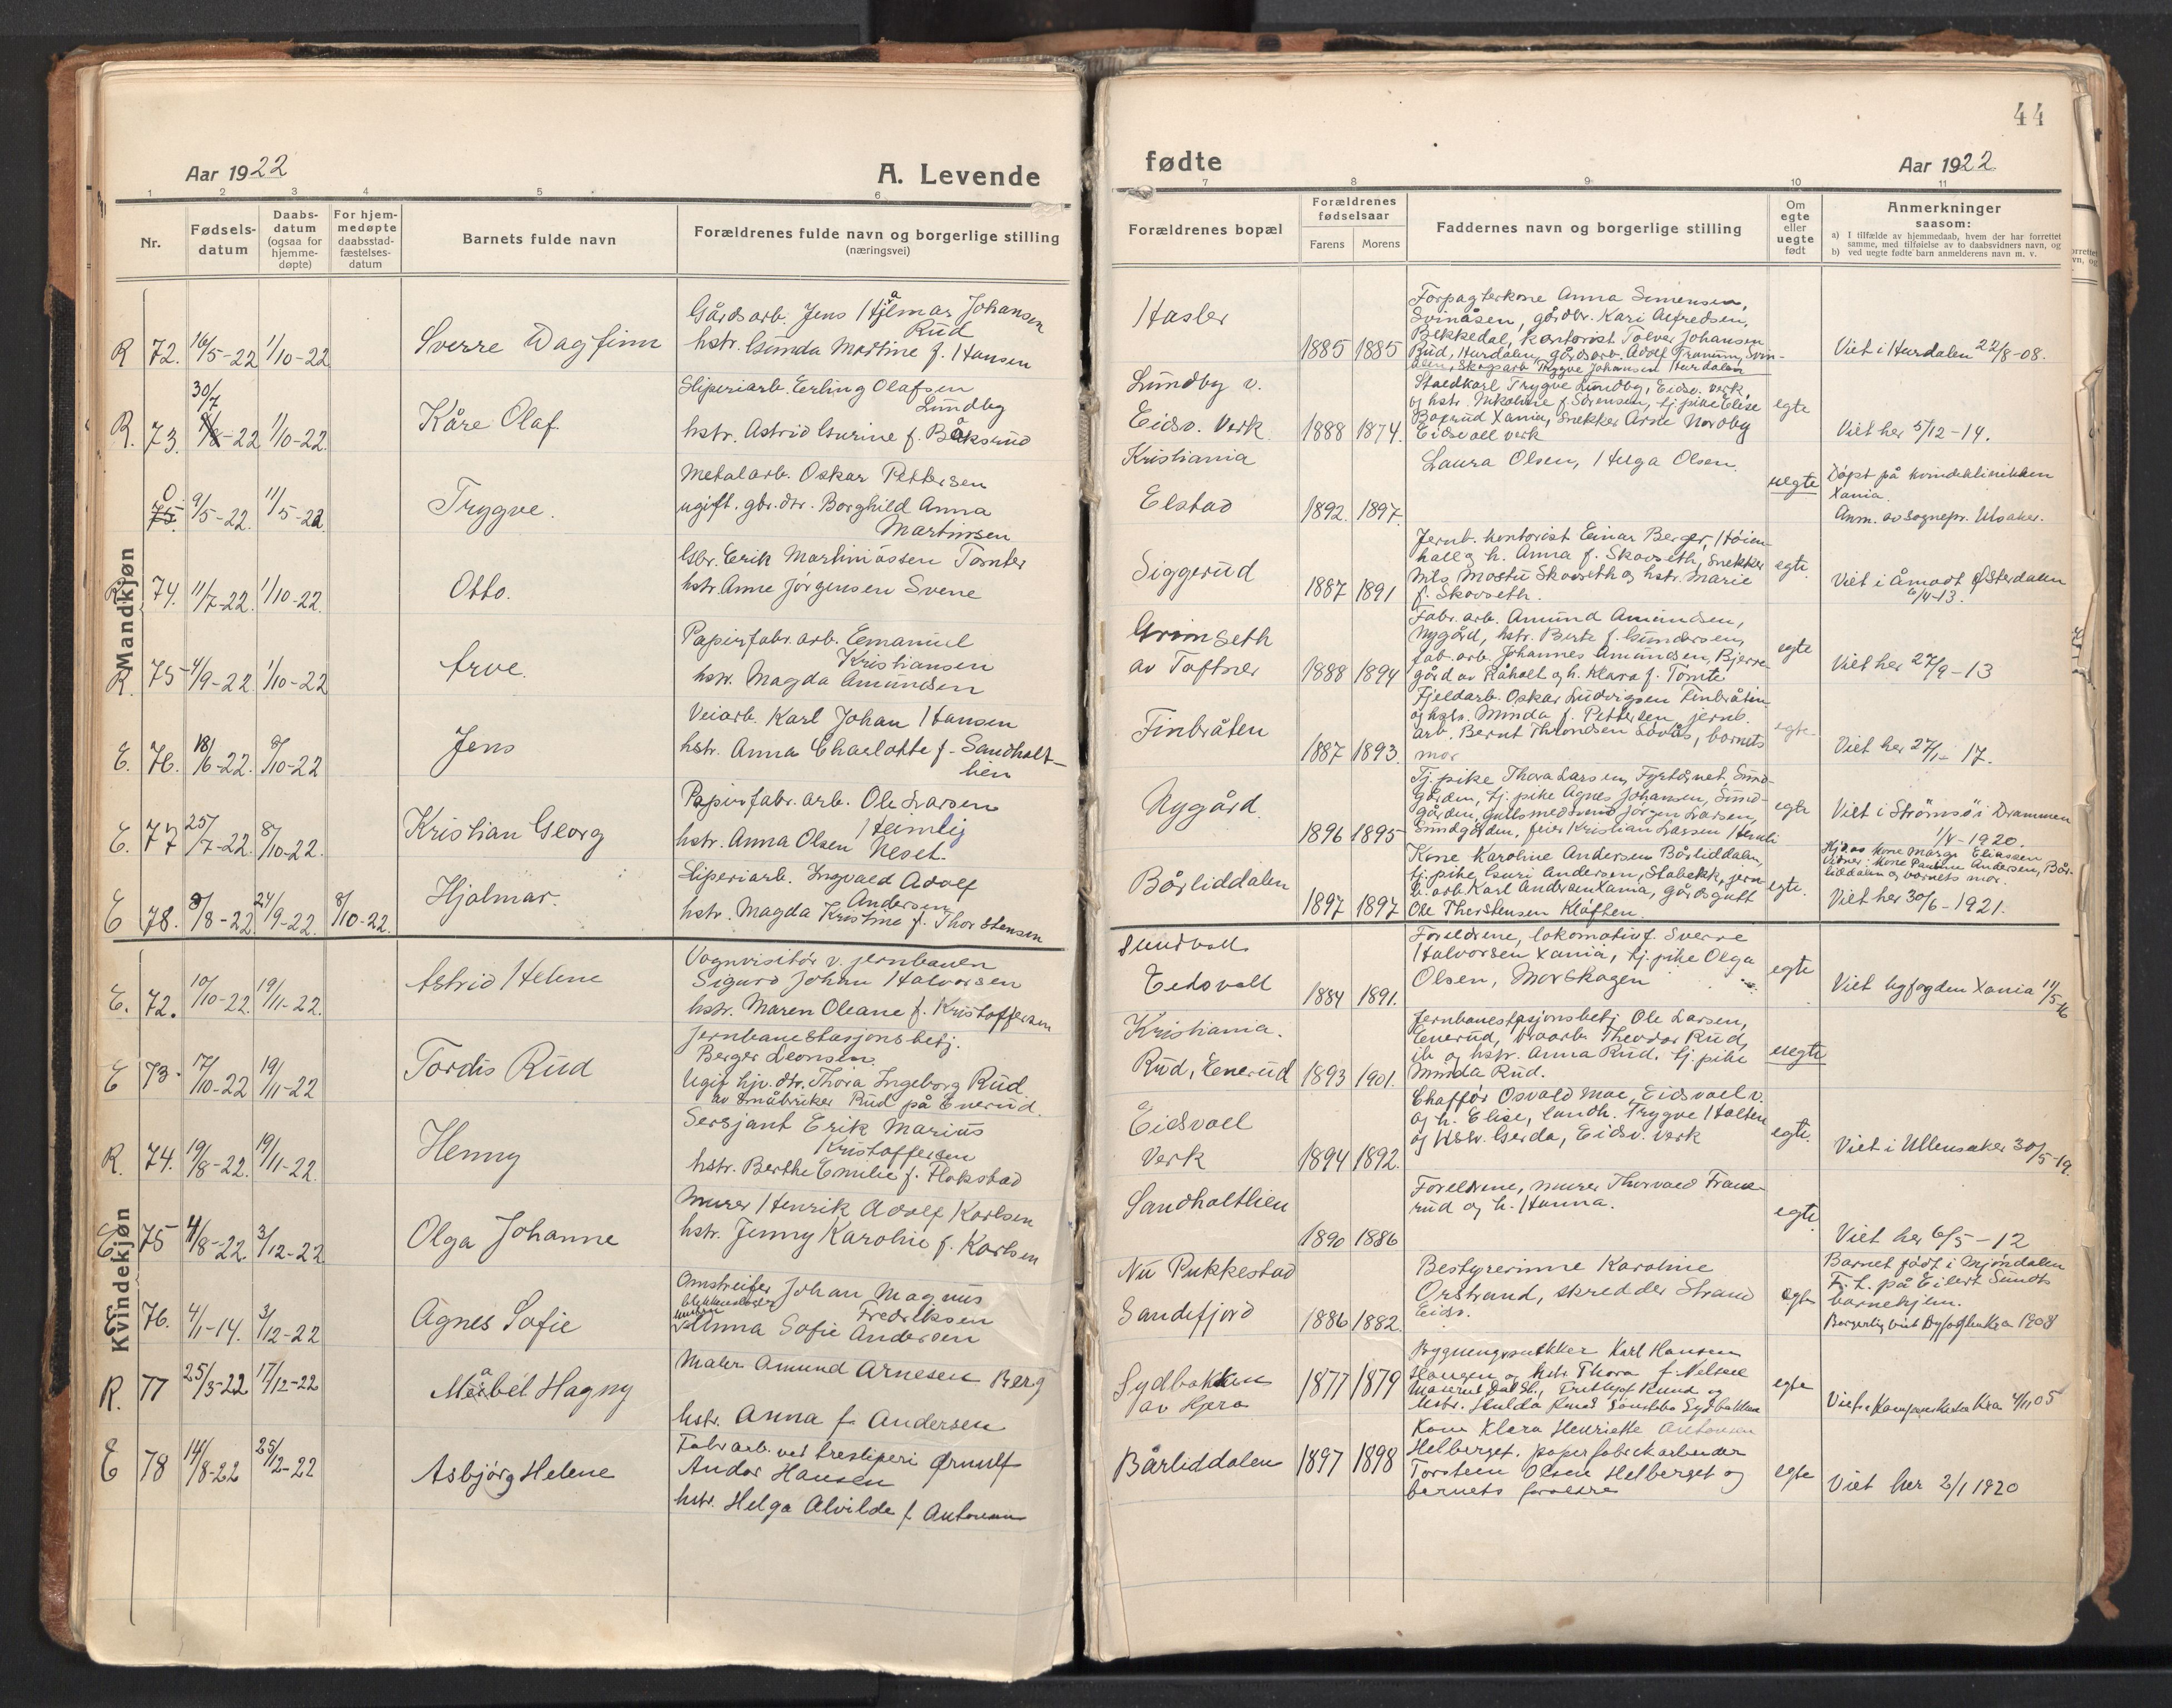 44
Aar 1922
A. Levende
fødte
Aar 1922
1 2 3 4 5 6 7 8 9 10 11
Nr.
Fødsels-
datum
Daabs-
datum
(ogsaa for
hjemme-
døpte)
For hjem-
medøpte
daabsstad-
fæstelses-
datum
Barnets fulde navn
Forældrenes fulde navn og borgerlige stilling
(næringsvei)
Forældrenes bopæl
Forældrenes
fødselsaar
Farens Morens
Faddernes navn og borgerlige stilling
Om
egte
eller
uegte
født
Anmerkninger
saasom:
a) I tilfælde av hjemmedaab, hvem der har forrettet
samme, med tilføielse av to daabsvidners navn, og
b) ved uegte fødte barn anmelderens navn m. v.
Mandkjøn
R 72. 16/5-22 1/10-22
Sverre Dagfinn
Gårdsarb. Jens Hjalmar Johansen
Rud
hstr. Gunda Martine f. Hansen
Hasler
1885 1885
Forpagterkone Anna Simensen,
Svinåsen, gårdbr. Kari Alfredsen,
Bekkedal, kontorist Tolver Johansen
Rud, Hurdalen, gårdsarb. Adolf Tranum, Svin-
åsen, Skogsarb. Trygve Johansen Hurdalen
Viet i Hurdalen 22/8-08.
R. 73. 30/7 22 1/10-22.
Kåre Olaf
Sliperiarb. Erling Olafsen
Lundby
hstr. Astrid Gurine f. Båksrud
Lundby v.
Eidsv. Verk
1888 1874.
Staldkarl Trygve Lundby, Eidsv. verk,
og hstr. Nikoline f. Sörensen, tj. pike Elise
Bogrud Xania, Snekker Arne Nordby
Eidsvoll verk
egte
Viet her 5/12-14.
0 75. 9/5-22. 11/5-22
Trygve.
Metalarb. Oskar Pettersen
ugift. gbr. dtr. Borghild Anna
Martinsen
Kristiania
Elstad
1892. 1897.
Laura Olsen, Helga Olsen.
uegte
Döpt på kvindeklinikken
Xania.
Anm. av sognepr. Utaaker.
R 74. 11/7-22. 1/10-22.
Otto.
Gbr. Erik Martiniussen Tomter
hstr. Anne Jörgensen Svene
Siggerud
1887 1891
Jernb. kontorist Einar Berger, Höien-
hall og h. Anna f. Skovseth, Snekker
Nils Mostu Skovseth og hstr. Marie
f. Skovseth.
egte.
Viet i Åmodt Østerdalen
6/4-13.
R. 75 4/9-22. 1/10-22
Arve.
Papirfabr. arb. Emanuel
Kristiansen
hstr. Magda Amundsen
Grimseth
av Toftner
1888 1894
Fabr. arb. Amund Amundsen,
Nygård, hstr. Berte f. Gundersen,
fab. arb. Johannes Amundsen, Bjerre-
gård av Råholt og h. Klara f. Tomte
egte
Viet her 27/9-13
E. 76. 18/6-22. 8/10-22
Jens
Veiarb. Karl Johan Hansen
hstr. Anna Charlotte f. Sandholt-
lien
Finbråten
1887 1893.
Fjeldarb. Oskar Ludvigsen Finbråten
og hstr. Minda f. Pettersen, jernb.
arb. Bernt Throndsen Lovås, barnets
mor
egte
Viet her 27/1-17.
E. 77 25/7-22. 8/10-22.
Kristian Georg
Papirfabr. arb. Ole Larsen
Heimlig
hstr. Anna Olsen Neset.
Nygård.
1896 1895
Tj. pike Thora Larsen, Fyrtårnet, Sund-
gården, tj. pike Agnes Johansen, Sund-
gården, gullsmedsvend Jörgen Larsen,
Sundgården, feier Kristian Larsen Hemli
egte
Viet i Strömsö i Drammen
1/4-1920.
E 78. 8/8-22 24/9-22. 8/10-22.
Hjalmar.
Sliperiarb. Ingvald Adolf
Andersen
hstr. Magda Kristine f. Thorstensen
Bårliddalen
1897 1897
Kone Karoline Andersen Bårliddalen,
tj. pike Guri Andersen, Stabekk, jern-
b. arb. Karl Andersen Xania, gårdsgutt
Ole Thorstensen Kløften.
egte.
Hj.d. av kone Marge Eliassen
Vidner: Kone Pauline Andersen, Bår-
liddalen og barnets mor.
Viet her 30/6-1921.
Kvindekjøn
E. 72. 10/10-22. 19/11-22.
Astrid Helene
Vognvisitör v. jernbanen
Sigurd Johan Halvorsen
hstr. Maren Oleane f. Kristoffersen
Sundvoll
Eidsvoll
1884 1891.
Foreldrene, lokomotivf. Sverre
Halvorsen Xania, tj. pike Olga
Olsen, Morskogen
egte
Viet byfogden Xania 11/5-16
E 73. 17/10-22 19/11-22
Tordis Rud
Jernbanestasjonsbetj.
Berger Leonsen.
Ugif. hjv. dtr. Thora Ingeborg Rud
av småbruker Rud på Enerud.
Kristiania.
Rud, Enerud
1893 1901.
Jernbanestasjonsbetj. Ole Larsen,
Enerud, Theodor Rud,
ib og hstr. Anna Rud, tj. pike
Minda Rud.
uegte
R. 74. 19/8-22. 19/11-22.
Henny
Sersjant Erik Marius
Kristoffersen
hstr. Berthe Emilie f. Flokstad
Eidsvoll
Verk
1894 1892.
Chaffør Osvald Moe, Eidsvoll v.
og h. Elise, Landh. Trygve Holter
og Hstr. Gerda, Eidsv. verk
egte.
Viet i Ullensaker 30/5-19.
E. 75 4/8-22. 3/12-22
Olga Johanne
Murer Henrik Adolf Karlsen
hstr. Jenny Karoline f. Karlsen
Sandholtlien
1890 1886
Foreldrene, murer Thorvald Frans-
rud og h. Hanna.
egte
Viet her 6/5-12
E 76. 4/1-14. 3/12-22
Agnes Sofie
Omstreifer Johan Magnus
Fredriksen
Anna Sofie Andersen
Nu Pukkestad
Sandefjord
1886 1882.
Bestyrerinne Karoline
Orstrand, skredder Strand
Eidsv.
egte
Barnet födt i Mjöndalen
F. t. på Eilert Sundts
barnehjem.
Borgerlig viet Byfogden Kra 1908
R. 77 25/3-22 17/12-22
Måbel Hagny
Maler Amund Arnesen Berg
hstr. Anna f. Andersen
Sydbakken
av Hjera
1877 1879
Bygningssnekker Karl Hansen
Haugen og hstr. Thora f. Nilsen
Frithjof Rund og
hstr. Hulda Sydbakken
egte
Viet i Kampens kirke Kra 4/11 05
E 78 14/8-22 25/12-22
Asbjørg Helene
Fabr. arb. ved tresliperi Ørnulf
Andor Hansen
hstr. Helga Alvilde f. Antonsen
Bårliddalen
1897 1898
Kone Klara Henriette Antonsen
Helberget. papirfabrikarbeider
Torstein Olsen Helberget og
barnets foreldre
egte
Viet her 2/1 1920